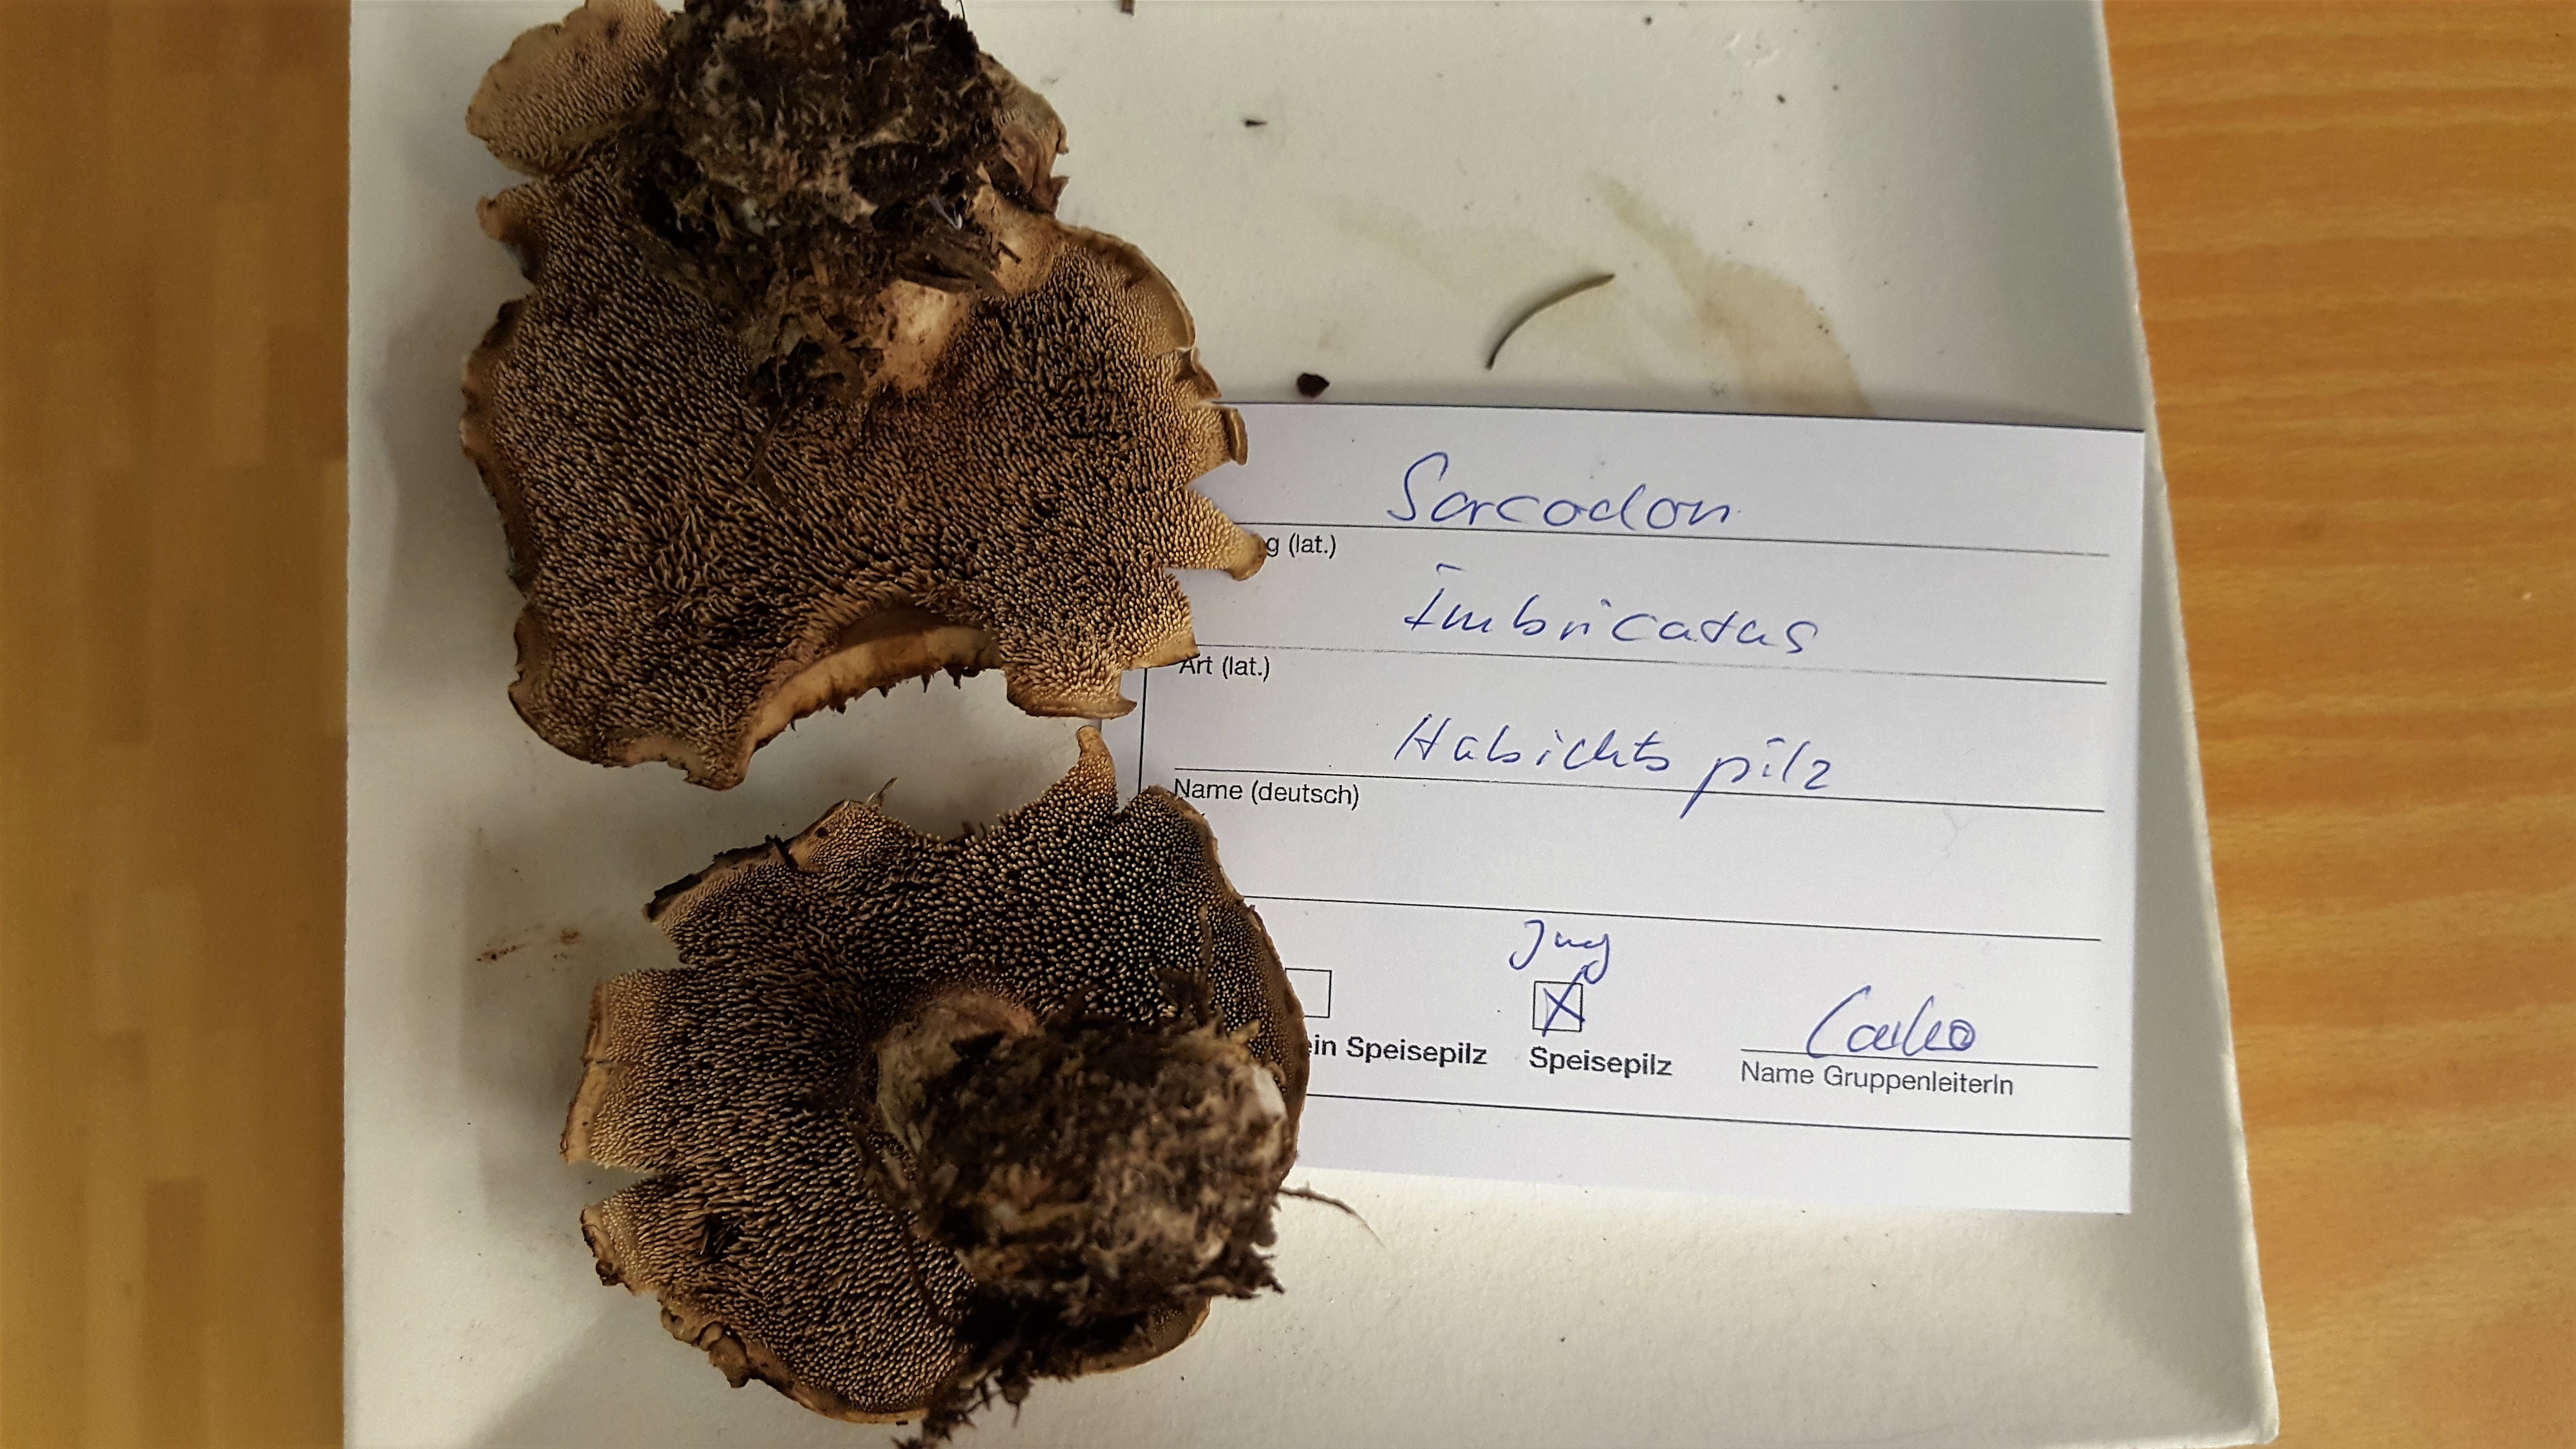 Sarcodon
g (lat.)
Imbricatus
Art (lat.)
Habichts pilz
Name (deutsch)
Jung
ein Speisepilz Speisepilz
Name GruppenleiterIn